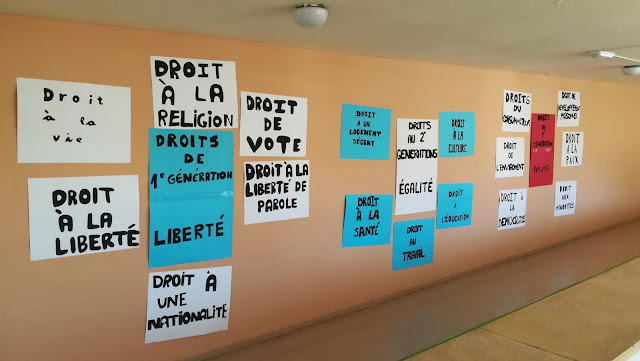 Droit
à la
vie
DROIT
À LA
LIBERTÉ
DROIT
À LA
RELIGION
DROITS
DE
1e GÉNÉRATION
LIBERTÉ
DROIT À
UNE
NATIONALITÉ
DROIT
DE
VOTE
DROIT À LA
LIBERTÉ DE
PAROLE
DROIT
À UN
LOGEMENT
DÉCENT
DROIT
À LA
SANTÉ
DROITS
AU 2e
GENERATIONS
ÉGALITÉ
DROIT
AU
TRAVAIL
DROIT
À LA
CULTURE
DROIT À
L'ÉDUCATION
DROITS
DU
CONSOMMATEUR
DROIT
DE
L'ENVIROMENT
DROIT
À LA
DÉMOCRATIE
DROITS
DE 3e
GÉNÉRATION
DROIT DE
DEVELOPPEMENT
PERSONNEL
DROIT
À LA
PAIX
DROIT
AUX
MINORITÉS